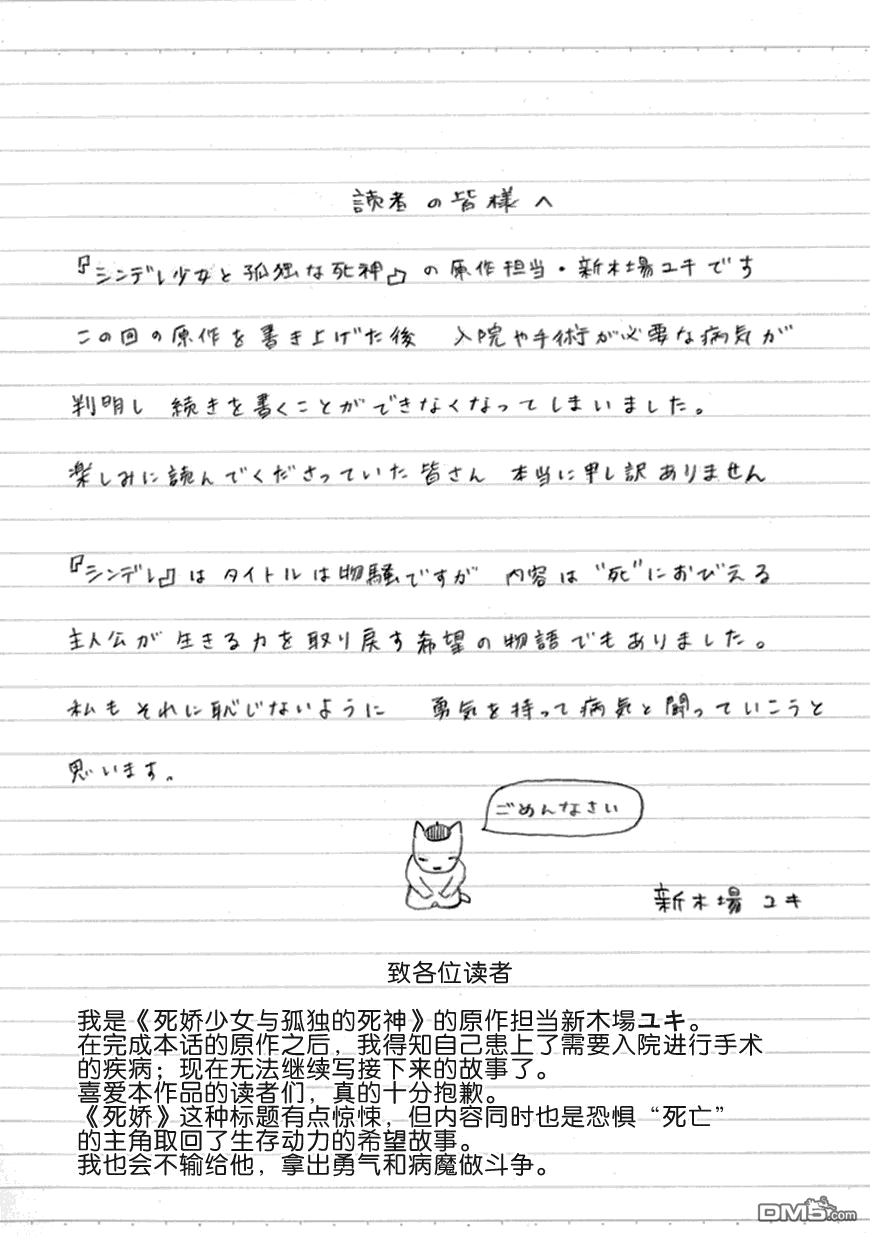 読者の皆様へ
『シンデレ少女と孤独な死神』の原作担当・新木場ユキです
この回の原作を書き上げた後 入院や手術が必要な病気が
判明し 続きを書くことができなくなってしまいました。
楽しみに読んでくださっていた皆さん 本当に申し訳ありません
『シンデレ』はタイトルは物騒ですが 内容は“死”におびえる
主人公が生きる力を取り戻す希望の物語でもありました。
私もそれに恥じないように 勇気を持って病気と闘っていこうと
思います。
ごめんなさい
新木場ユキ
致各位读者
我是《死娇少女与孤独的死神》的原作担当新木場ユキ。
在完成本话的原作之后，我得知自己患上了需要入院进行手术
的疾病；现在无法继续写接下来的故事了。
喜爱本作品的读者们，真的十分抱歉。
《死娇》这种标题有点惊悚，但内容同时也是恐惧“死亡”
的主角取回了生存动力的希望故事。
我也会不输给他，拿出勇气和病魔做斗争。
DM5.com